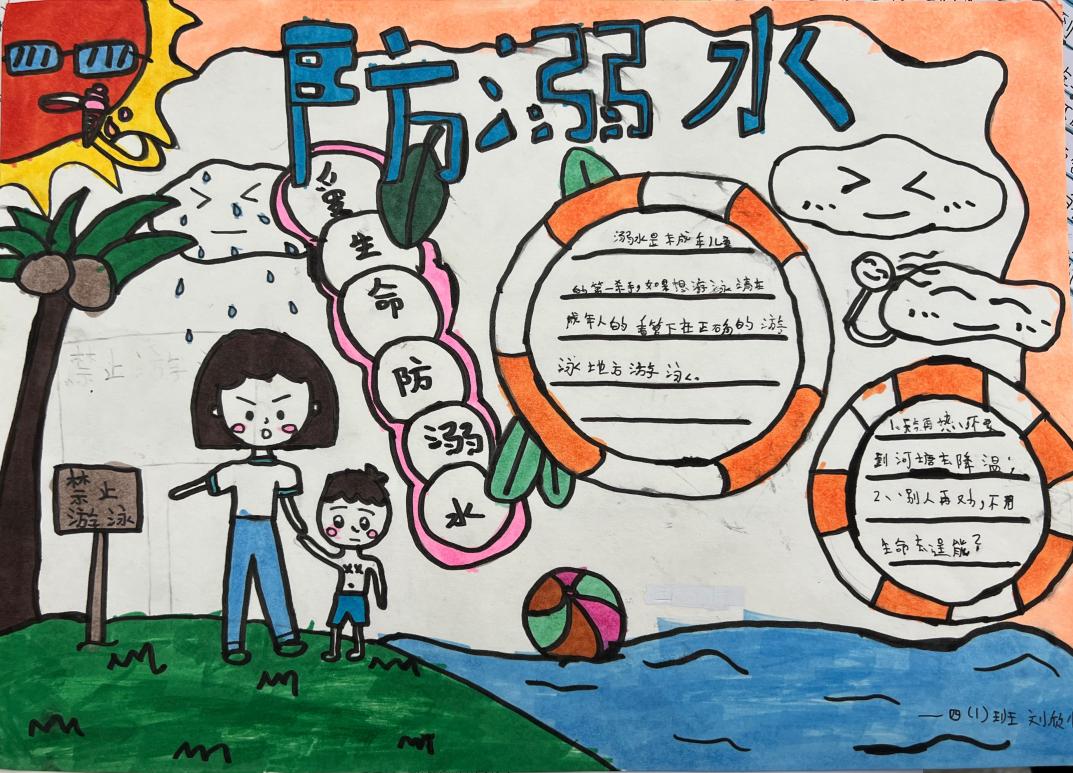 防溺水
爱
生
命
防
溺
水
溺水是未成年儿童
的第一杀手,如果想游泳请在
成年人的看管下在正确的游
泳地方游泳。
1、天再热,不要
到河塘去降温;
2、别人再劝,不用
生命去逞能?
禁止游
禁止
游泳
—四(1)班 刘欣